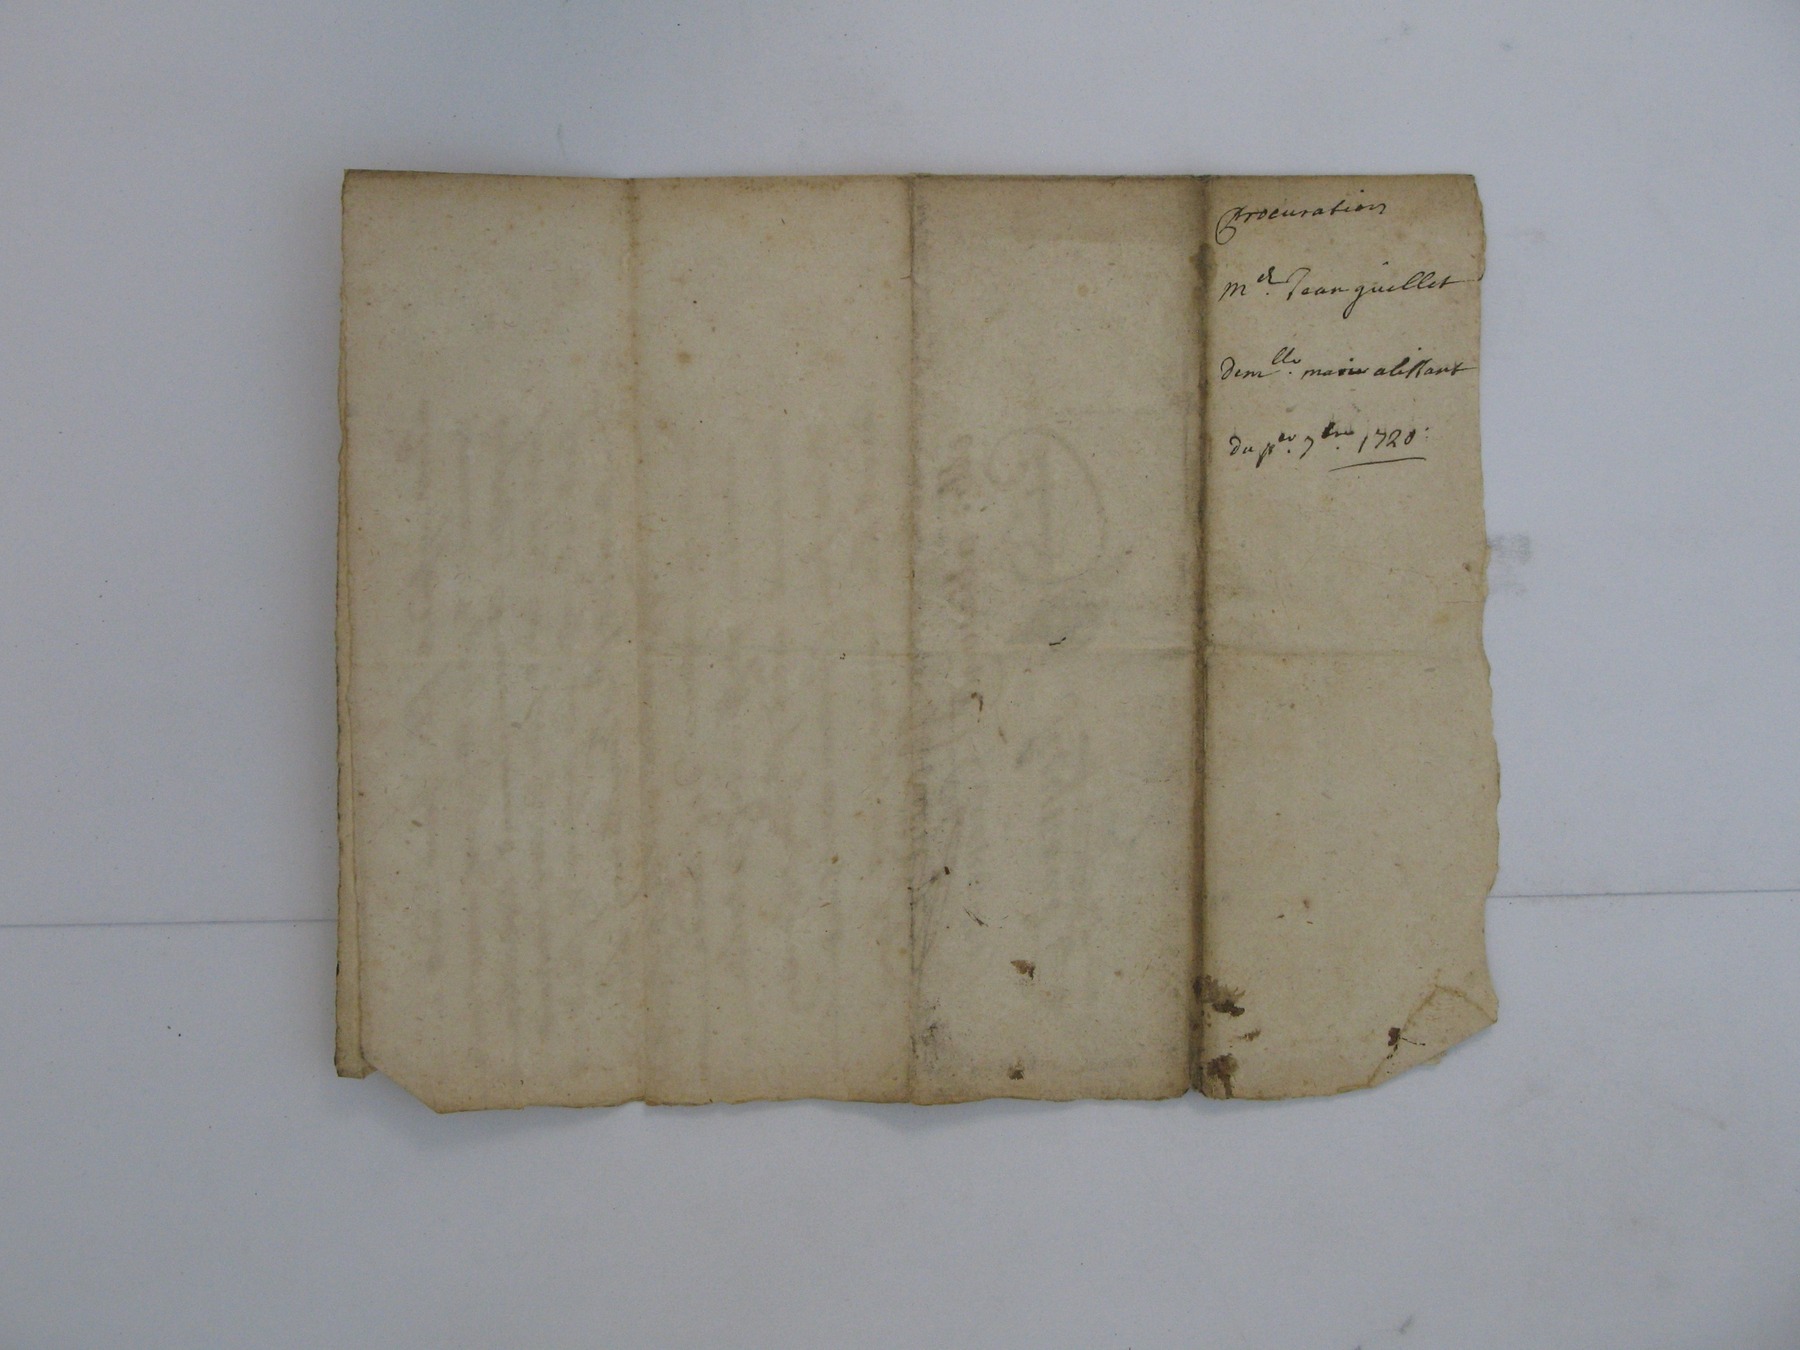 Procuration
Mr. Jean guillet
Demlle. marie alissant
du pr. 7bre. 1720